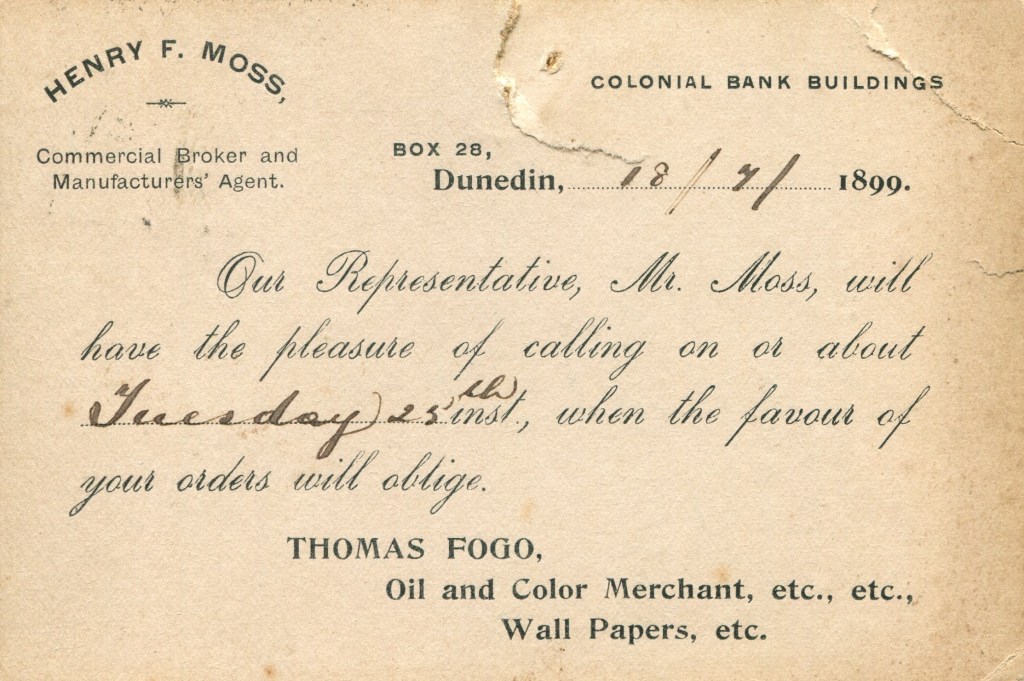 HENRY F. MOSS,
Commercial Broker and
Manufacturers' Agent.
COLONIAL BANK BUILDINGS
BOX 28,
Dunedin, 18/7/ 1899.
Our Representative, Mr. Moss, will
have the pleasure of calling on or about
Tuesday 25th inst., when the favour of
your orders will oblige.
THOMAS FOGO,
Oil and Color Merchant, etc., etc.,
Wall Papers, etc.